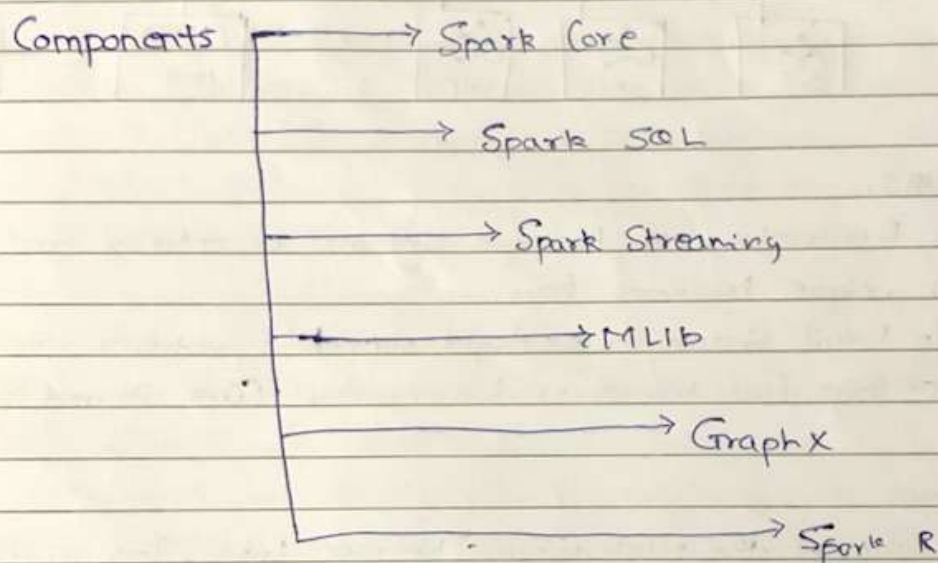 Components → Spark Core
→ Spark SQL
→ Spark Streaming
→ MLIb
→ GraphX
→ Spark R